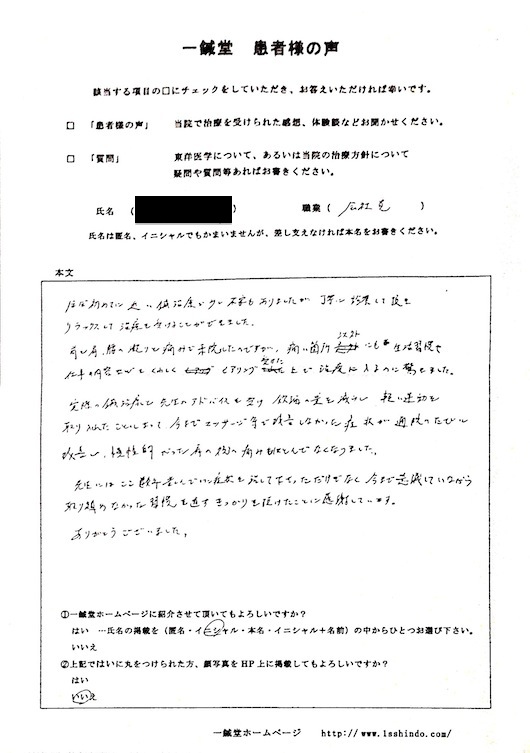 一鍼堂 患者様の声
該当する項目の□にチェックをしていただき、お答えいただければ幸いです。
□ 「患者様の声」 当院で治療を受けられた感想、体験談などお聞かせください。
□ 「質問」 東洋医学について、あるいは当院の治療方針について
疑問や質問等あればお書きください。
氏名 ( ) 職業 ( 会社員 )
氏名は匿名、イニシャルでもかまいませんが、差し支えなければ本名をお書きください。
本文
ほぼ初めてに近い鍼治療で少し不安もありましたが 丁寧に 後を
リラックスして治療を受けることができました。
肩の 痛みで来院したのですが、痛い箇所 以外 にも 生活習慣や
仕事の内容 くわしく ヒアリング 上で 治療に入るのに驚きました。
実際の鍼治療と 先生のアドバイスを受け 飲酒の量を減らし 軽い運動を
取り入れたことによって、今までマッサージ等で改善しなかった症状が 通院のたびに
改善し、慢性的だった肩の 痛みもほとんどなくなりました。
先生には ここ数年 症状を だけでなく 今まで意識していながら
取り組めなかった習慣を直すきっかけを頂けたことに感謝しています。
ありがとうございました。
①一鍼堂ホームページに紹介させて頂いてもよろしいですか?
はい …氏名の掲載を(匿名・イニシャル・本名・イニシャル+名前)の中からひとつお選び下さい。
いいえ
②上記ではいに丸をつけられた方、顔写真をHP上に掲載してもよろしいですか?
はい
いいえ
一鍼堂ホームページ http://www.1sshindo.com/